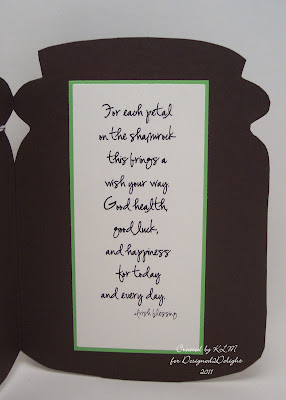 For each petal
on the shamrock
this brings a
wish your way.
Good health,
good luck,
and happiness
for today
and every day.
-Irish blessing
Created by KLM
for Designed2Delight
2011